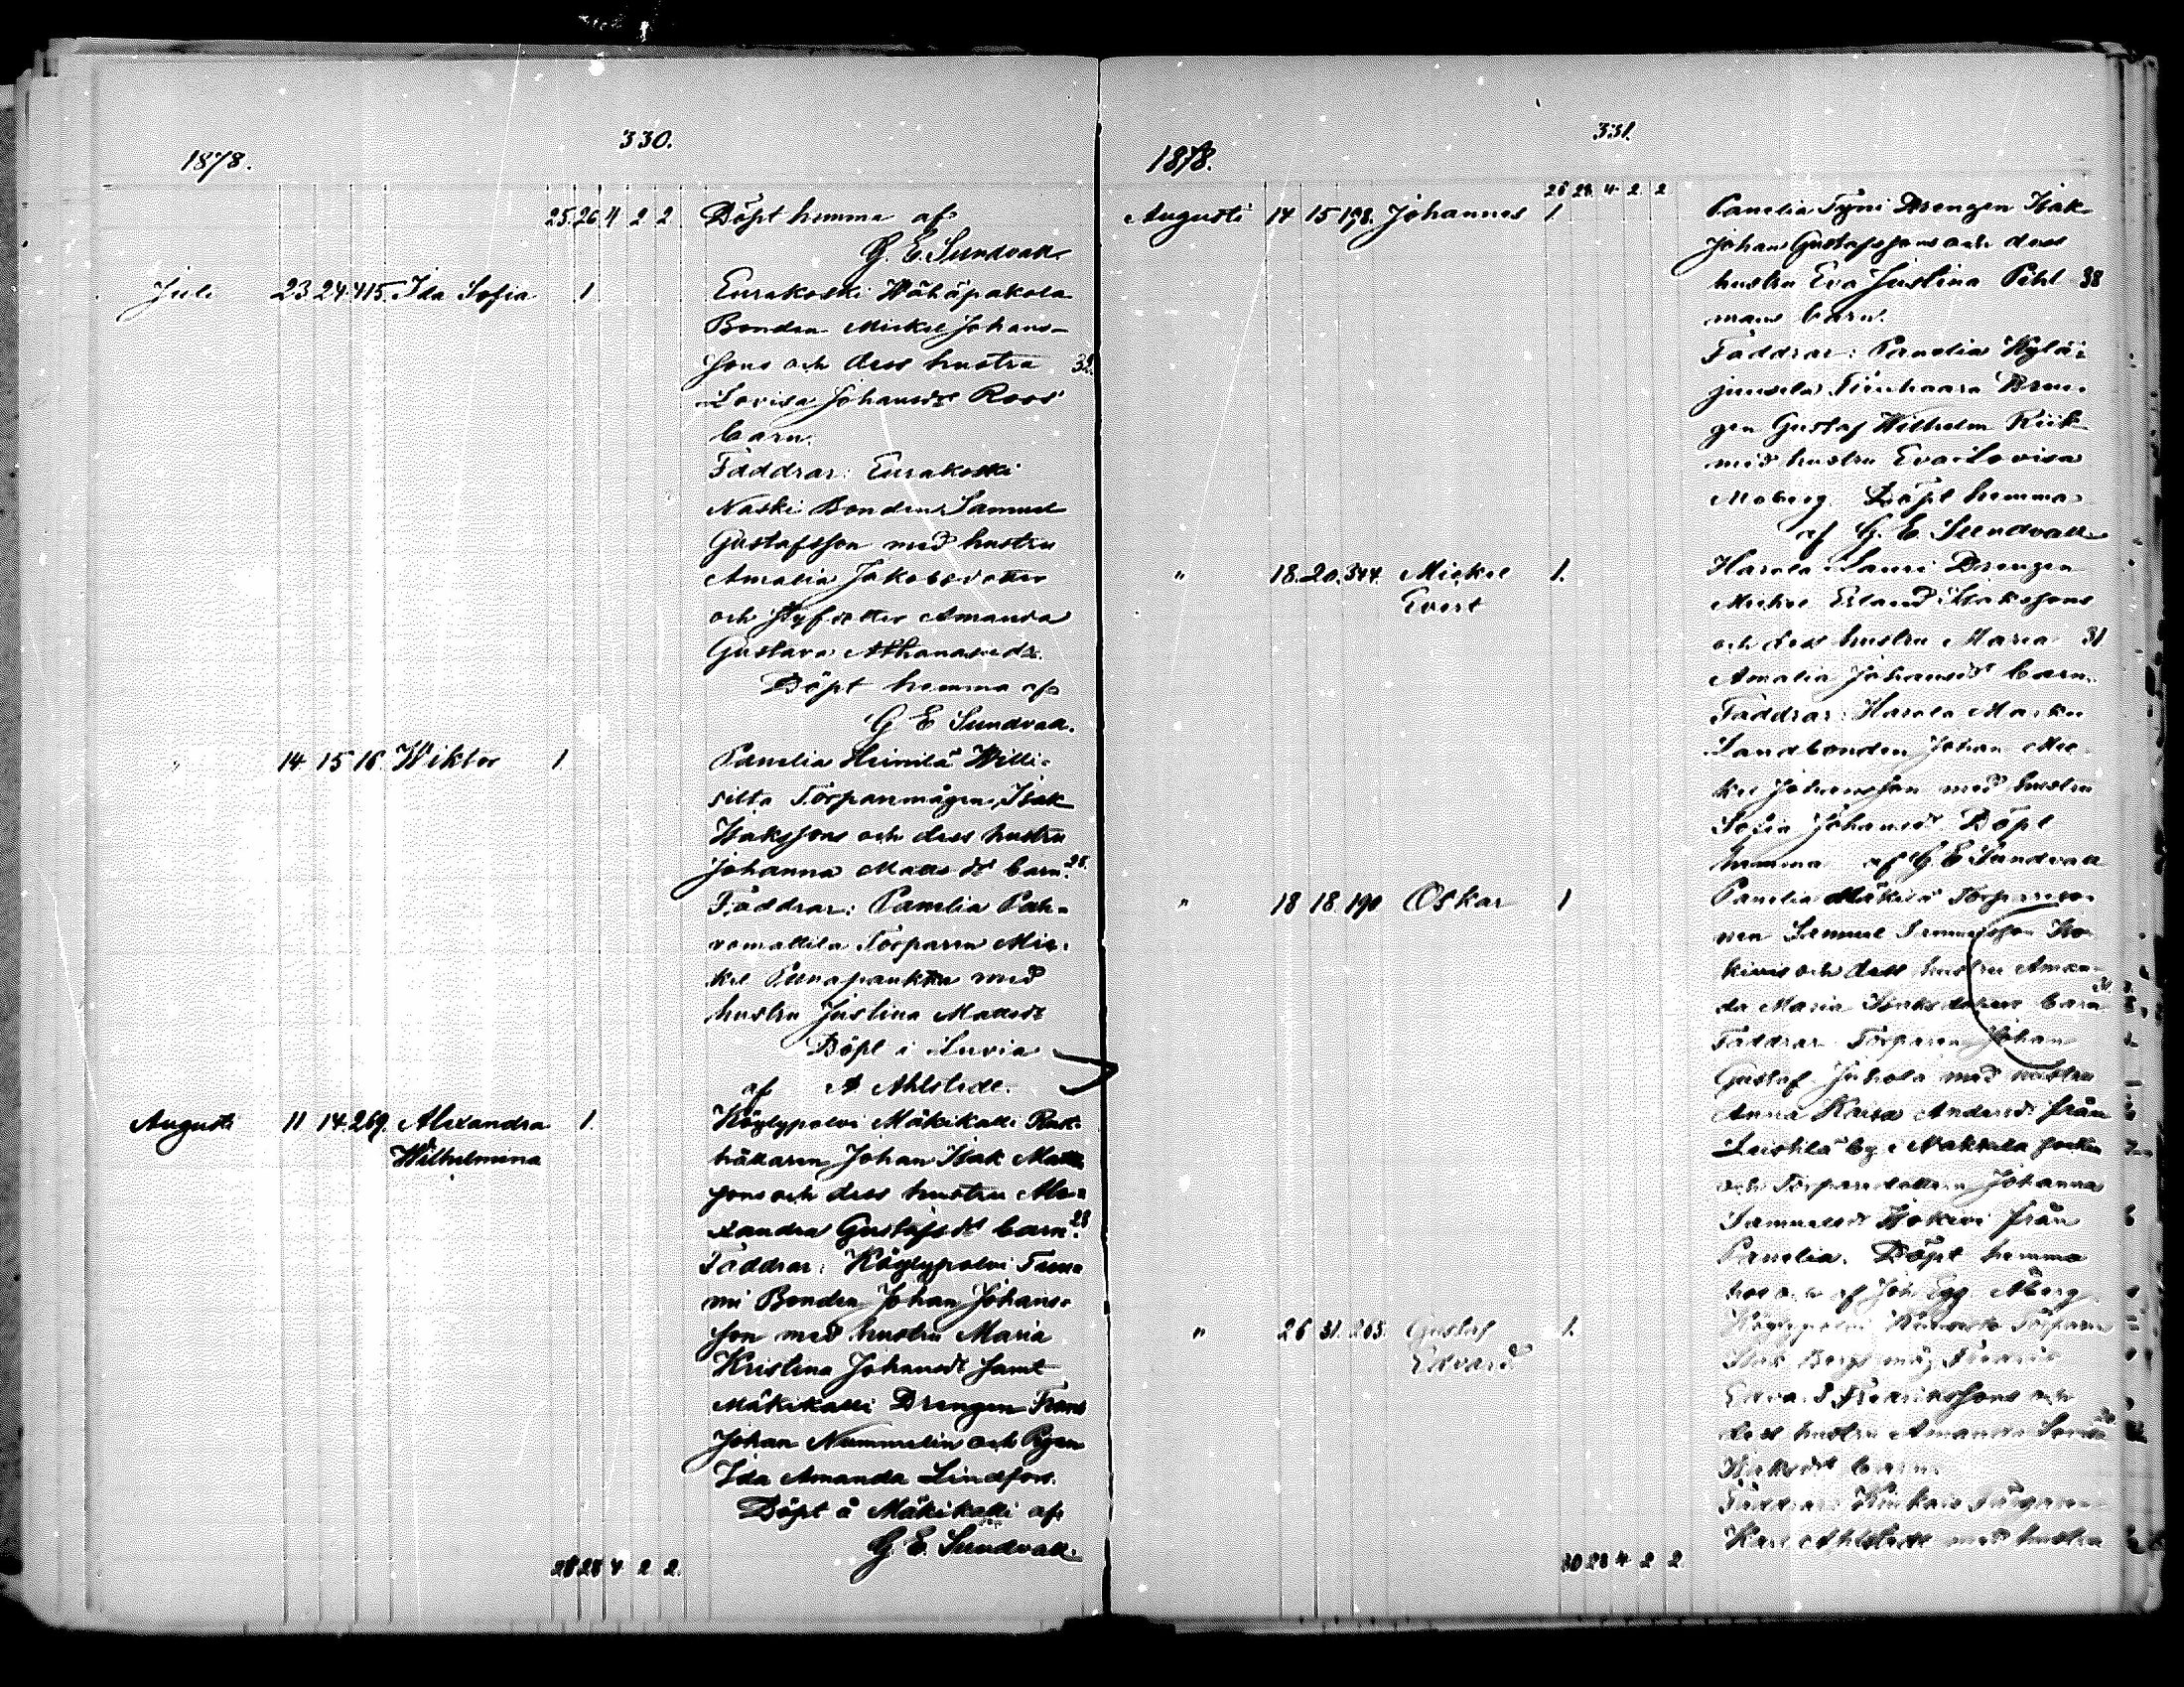 330.
1878.
25. 26 4 2 2 Döpt hemma af
G. E. Sundvall
Juli 23. 24. 415. Ida Sofia 1 Eurakoski Wähäpakola
Bonden Mickel Johans-
sons och dess hustru 32.
Lovisa Johansdr Roos
barn.
Faddrar: Eurakoski
Naski Bonden Samuel
Gustafsson med hustru
Amalia Jakobsdotter
och Amanda
Gustava
Döpt hemma af
G E Sundvall.
" 14 15 16. Wiktor 1. Panelia Heinilä Willi-
silta Torparmågen Isak
Isakssons och dess hustru
Johanna Matts dr barn. 28.
Faddrar: Panelia
Torparen Mic-
kel med
hustru Justina Mattsdr
Döpt i Luvia
af A Ahlstedt.
Augusti 11 14. 269. Alexandra 1. Köylypolvi Mäkikalli
Wilhelmina Johan Isak
sons och dess hustru Ale-
xandra Gustafsdr barn. 28
Faddrar: Köylypolvi Tum-
mi Bonden Johan Johans-
son med hustru Maria
Kristina Johansdr samt
Mäkikalli Drengen Frans
Johan Nummelin och Pigan
Ida Amanda Lindfors.
Döpt å Mäkikalli af
G. E. Sundvall.
28 28 4 2 2.
331.
1878.
26 28. 4. 2. 2
Augusti 14 15 198. Johannes 1. Panelia Drengen Isak
Johan Gustafssons och dess
hustru Eva Justina Pihl 38
mans barn.
Faddrar: Panelia Kylä-
Dren-
gen Gustaf Wilhelm
med hustru Eva Lovisa
Moberg. Döpt hemma
af G. E. Sundvall
" 18. 20. 344. Mickel 1. Harola Lauri Drengen
Evert Mickel Erland Isakssons
och dess hustru Maria 31
Amalia Johansdr barn.
Faddrar: Harola Marku
Landbonden Johan Mic-
kel Johansson med hustru
Sofia Johansdr. Döpt
hemma af G. E Sundvall
" 18 18. 190 Oskar 1 Panelia Mäkilä
Samuel
och dess hustru Aman-
da Maria Isaksdotter barn 31.
Faddrar Torparen Johan
Gustaf med hustru
Anna Kaisa Andersdr från
Leistilä by i Nakkila socken
och Johanna
Samuelsdr från
Panelia. Döpt hemma
af Joh. Åberg
" 26 31. 263. Gustaf 1. Köylypolvi
Edvard
Fredrikssons och
dess hustru Amanda
Isaksdr barn.
Faddrar:
Karl Ahlstedt med hustru
30 28 4 2 2.